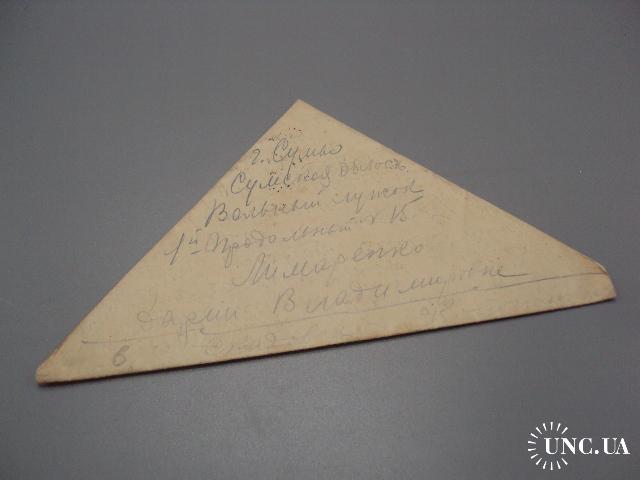 г. Сумы
Сумская область
Вольный лужок
1й Продольный № 15
Лимаренко
Дарии Владимировне
в
UNC.UA